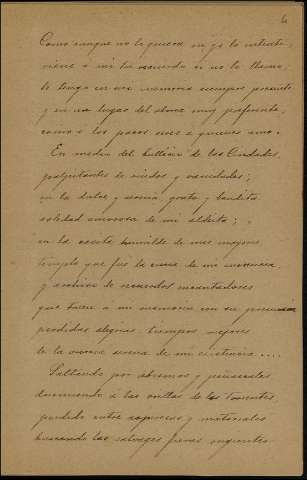 6
Como aunque no lo quiera ni yo lo intente,
viene á mi tu recuerdo si no le llamo,
te tengo en mi memoria siempre presente
y en un lugar del alma muy preferente,
como á los pocos seres á quienes amo.
En medio del bullicio de las Ciudades,
palpitantes de ruidos y vanidades;
en la dulce y sana, grata y bendita
soledad amorosa de mi aldeita;
en la casita humilde de mis mayores
templo que fué la cuna de mi inocencia,
y archivo de recuerdos encantadores
que traen á mi memoria con su presencia
perdidas alegrias, tiempos mejores
de la
de mi existencia....
Saltando por abismos y peñascales
durmiendo á las orillas de los torrentes,
perdido entre espesuras y matorrales
buscando las salvages fieras rugientes